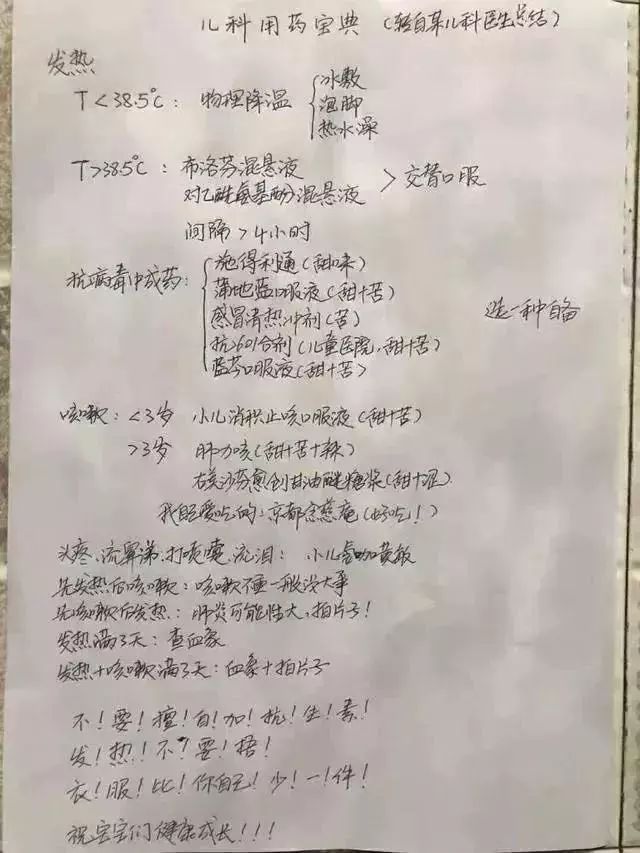 儿科用药宝典(转自某儿科医生总结)
发热
T<38.5℃: 物理降温 冰敷
泡脚
热水澡
T>38.5℃: 布洛芬混悬液
对乙酰氨基酚混悬液 > 交替口服
间隔>4小时
抗病毒中成药: 施得利通(甜味)
蒲地蓝口服液(甜+苦)
感冒清热冲剂(苦)
抗601合剂(儿童医院,甜+苦)
蓝芩口服液(甜+苦)
选一种自备
咳嗽: <3岁 小儿消积止咳口服液(甜+苦)
>3岁 肺力咳(甜+苦+辣)
右美沙芬愈创甘油醚糖浆(甜+涩)
我自己爱吃的: 京都念慈庵(好吃!)
头疼、流鼻涕、打喷嚏、流泪: 小儿氨咖黄敏
先发热后咳嗽: 咳嗽不重一般没大事
先咳嗽后发热: 肺炎可能性大,拍片子!
发热满3天: 查血象
发热+咳嗽满3天: 血象+拍片子
不!要!擅!自!加!抗!生!素!
发!热!不!要!捂!
衣!服!比!你自己!少!一!件!
祝宝宝们健康成长!!!